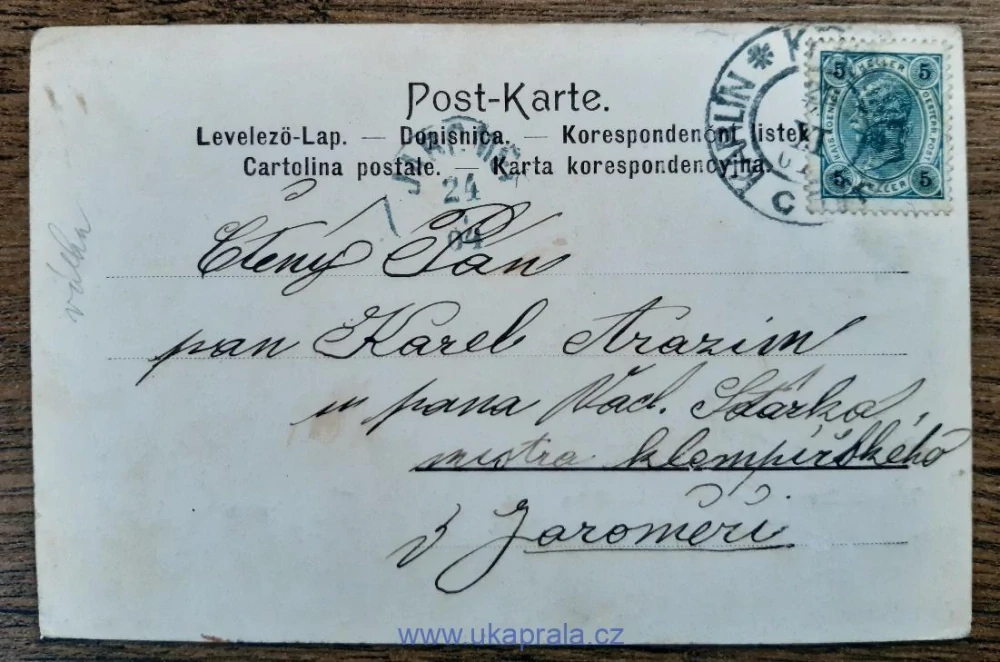 Post-Karte.
Levelezö-Lap. — Dopisnica. — Korespondenční listek
Cartolina postale. — Karta korespondencyjna.
KAROLIN
5 HELLER 5
5 HELLER 5
24
04
Ctěný Pán
pan Karel Arazim
u pana Václ. Stárka,
mistra klempířského
v Jaroměři
válka
www.ukaprala.cz